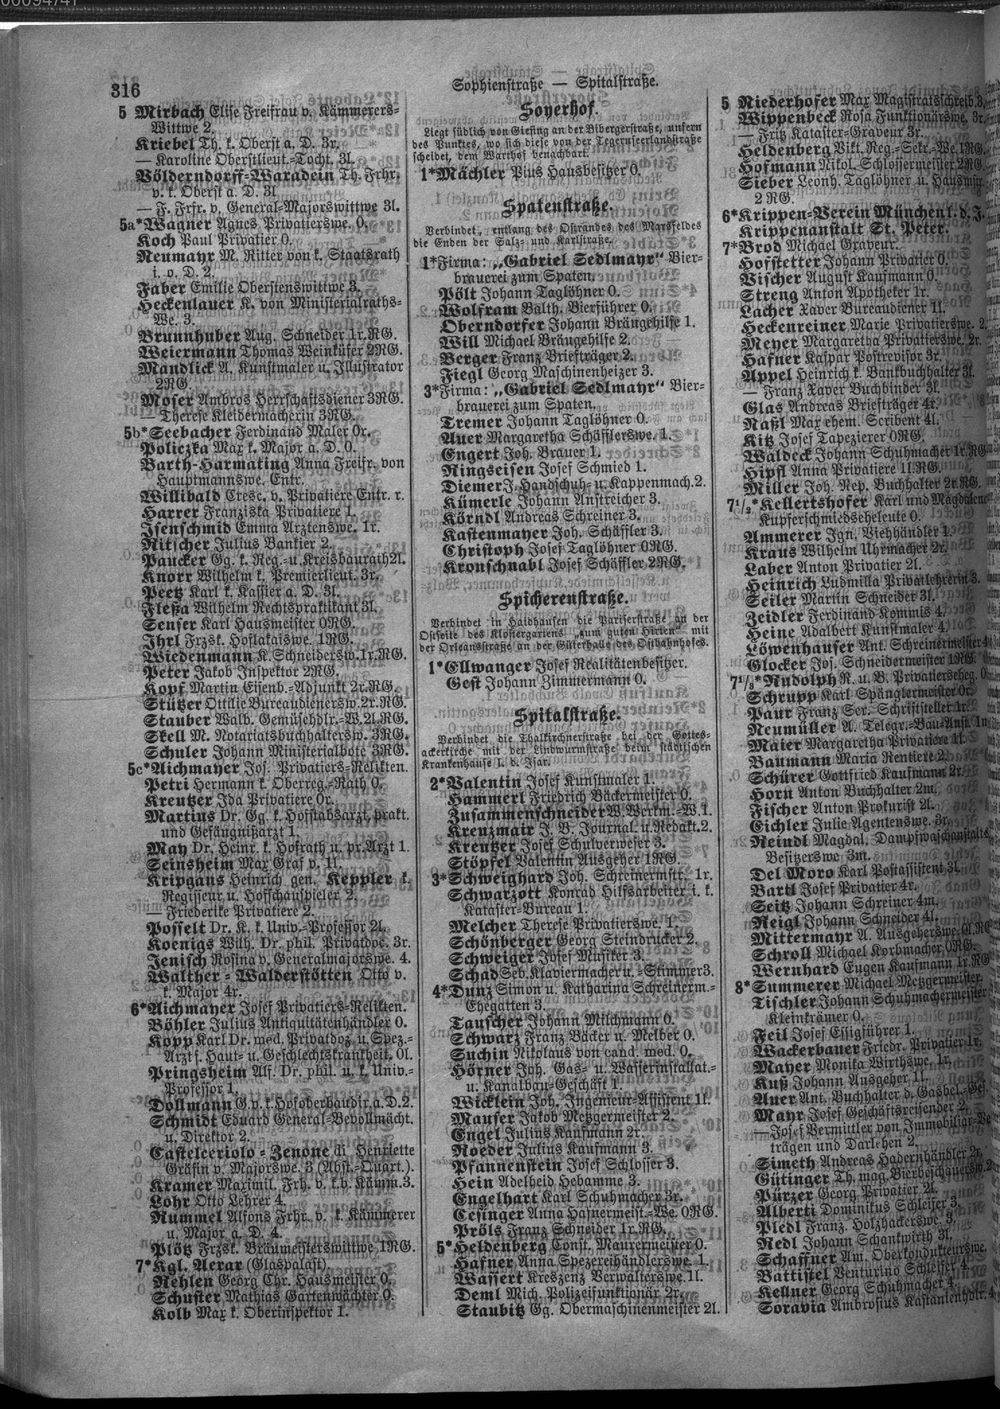 316
Sophienstraße — Spitalstraße.
5 Mirbach Elise Freifrau v. Kämmerers-
Wittwe 2.
Kriebel Th. k. Oberst a. D. 3r.
— Karoline Oberstlieut.-Tocht. 3l.
Völderndorff-Waradein Th. Frhr.
v. k. Oberst a. D. 3l
— F. Frfr. v. General-Majorswittwe 3l.
5a*Wagner Agnes Privatierswe. 0.
Koch Paul Privatier 0.
Neumayr M. Ritter von k. Staatsrath
i. o. D. 2.
Faber Emilie Oberstenswittwe 3.
Heckenlauer K. von Ministerialraths-
We. 3.
Brunnhuber Aug. Schneider 1r.RG.
Weiermann Thomas Weinküfer 2RG.
Mandlick A. Kunstmaler u. Illustrator
2RG.
Moser Ambros Herrschaftsdiener 3RG.
— Therese Kleidermacherin 3RG.
5b*Seebacher Ferdinand Maler 0r.
Policzka Max k. Major a. D. 0.
Barth-Harmating Anna Freifr. von
Hauptmannswe. Entr.
Willibald Cresc. v. Privatiere Entr. r.
Harrer Franziska Privatiere 1.
Isenschmid Emma Arztenswe. 1r.
Ritscher Julius Bankier 2.
Paucker Gg. k. Reg.- u. Kreisbaurath 2l.
Knorr Wilhelm k. Premierlieut. 3r.
Peetz Karl k. Kassier a. D. 3l.
Fleßa Wilhelm Rechtspraktikant 3l.
Senser Karl Hausmeister 0RG.
Ihrl Frzsk. Hoflakaiswe. 1RG.
Wiedenmann K. Schneidersw. 1r.RG.
Peter Jakob Inspektor 2RG.
Kopf Martin Eisenb.-Adjunkt 2r.RG.
Stützer Ottilie Bureaudienersw. 2r.RG.
Stauber Walb. Gemüsehdlr.-W. 2l.RG.
Skell M. Notariatsbuchhaltersw. 3RG.
Schuler Johann Ministerialbote 3RG.
5c*Aichmayer Jos. Privatiers-Relikten.
Petri Hermann k. Oberreg.-Rath 0.
Kreutzer Ida Privatiere 0r.
Martius Dr. Gg. k. Hofstabsarzt, prakt.
und Gefängnißarzt 1.
May Dr. Heinr. k. Hofrath u. pr. Arzt 1.
Seinsheim Max Graf v. 1l.
Kripgans Heinrich gen. Keppler k.
Regisseur u. Hofschauspieler 2.
— Friederike Privatiere 2.
Posselt Dr. K. k. Univ.-Professor 2l.
Koenigs Wilh. Dr. phil. Privatdoc. 3r.
Jenisch Rosina v. Generalmajorswe. 4.
Walther-Walderstötten Otto v.
k. Major 4r.
6*Aichmayer Josef Privatiers-Relikten.
Böhler Julius Antiquitätenhändler 0.
Kopp Karl Dr. med. Privatdoz. u. Spez.-
Arzt f. Haut- u. Geschlechtskrankheit. 0l.
Pringsheim Alf. Dr. phil. u. k. Univ.-
Professor 1.
Dollmann G. v. k. Hofoberbaudir. a. D. 2.
Schmidt Eduard General-Bevollmächt.
u. Direktor 2.
Castelceriolo-Zenone di Henriette
Gräfin v. Majorswe. 3 (Abst.-Quart.).
Kramer Maximil. Frh. v. k. b. Kämm. 3.
Lohr Otto Lehrer 4.
Rummel Alfons Frhr. v. k. Kämmerer
u. Major a. D. 4.
Plötz Frzsk. Bräumeisterswittwe 1RG.
7*Kgl. Aerar (Glaspalast).
Nehlen Georg Chr. Hausmeister 0.
Schuster Mathias Gartenwächter 0.
Kolb Max k. Oberinspektor 1.
Soyerhof.
Liegt südlich von Giesing an der Bibergerstraße, unfern
des Punktes, wo sich diese von der Tegernseerlandstraße
scheidet, dem Warthof benachbart.
1*Mächler Pius Hausbesitzer 0.
Spatenstraße.
Verbindet, entlang des Ostrandes des Marsfeldes
die Enden der Salz- und Karlstraße.
1*Firma: „Gabriel Sedlmayr“ Bier-
brauerei zum Spaten.
Pölt Johann Taglöhner 0.
Wolfram Balth. Bierführer 0.
Oberndorfer Johann Bräugehilfe 1.
Will Michael Bräugehilfe 2.
Berger Franz Briefträger 2.
Fiegl Georg Maschinenheizer 3.
3*Firma: „Gabriel Sedlmayr“ Bier-
brauerei zum Spaten.
Tremer Johann Taglöhner 0.
Auer Margaretha Schäfflerswe. 1.
Engert Joh. Brauer 1.
Ringseisen Josef Schmied 1.
Diemer J. Handschuh- u. Kappenmach. 2.
Kümerle Johann Anstreicher 3.
Körndl Andreas Schreiner 3.
Kastenmayer Joh. Schäffler 3.
Christoph Josef Taglöhner 0RG.
Kronschnabl Josef Schäffler 2RG.
Spicherenstraße.
Verbindet in Haidhausen die Pariserstraße an der
Ostseite des Klostergartens „zum guten Hirten“ mit
der Orleansstraße an der Güterhalle des Ostbahnhofes.
1*Ellwanger Josef Realitätenbesitzer.
Gest Johann Zimmermann 0.
Spitalstraße.
Verbindet die Thalkirchnerstraße bei der Gottes-
ackerkirche mit der Lindwurmstraße beim städtischen
Krankenhause l. d. Isar.
2*Valentin Josef Kunstmaler 1.
Hammerl Friedrich Bäckermeister 0.
Zusammenschneider W. Werkm.-W. 1.
Kreuzmair J. B. Journal. u. Redakt. 2.
Kreutzer Josef Schulverweser 3.
Stöpfel Valentin Ausgeher 1RG.
3*Schweighard Joh. Schreinermstr. 1r.
Schwarzott Konrad Hilfsarbeiter i. k.
Kataster-Bureau 1.
Melcher Therese Privatierswe. 1.
Schönberger Georg Steindrucker 2.
Schweiger Josef Musiker 3.
Schad Seb. Klaviermacher u. -Stimmer 3.
4*Dunz Simon u. Katharina Schreinerm.-
Ehegatten 3.
Tauscher Johann Milchmann 0.
Schwarz Franz Bäcker u. Melber 0.
Suchin Nikolaus von cand. med. 0.
Hörner Joh. Gas- u. Wasserinstallat.-
u. Kanalbau-Geschäft 1.
Wicklein Joh. Ingenieur-Assistent 1l.
Mauser Jakob Metzgermeister 2.
Engel Julius Kaufmann 2r.
Roeder Julius Kaufmann 3.
Pfannenstein Josef Schlosser 3.
Hein Adelheid Hebamme 3.
Engelhart Karl Schuhmacher 3r.
Cesinger Anna Hafnermeist.-We. 0RG.
Pröls Franz Schneider 1r.RG.
5*Heldenberg Const. Maurermeister 0.
Hafner Anna Spezereihändlerswe. 1.
Wassert Kreszenz Verwalterswe. 1l.
Deml Mich. Polizeifunktionär 2r.
Staubitz Gg. Obermaschinenmeister 2l.
5 Niederhofer Max Magistratsschreib. 3.
Wippenbeck Rosa Funktionärswe. 3r.
— Fritz Kataster-Graveur 3r.
Heldenberg Vikt. Reg.-Sekr.-We. 1RG.
Hofmann Nikol. Schlossermeister 2RG.
Sieber Leonh. Taglöhner u. Hausmstr.
2 RG.
6*Krippen-Verein München l. d. J.
Krippenanstalt St. Peter.
7*Brod Michael Graveur.
Hofstetter Johann Privatier 0.
Vischer August Kaufmann 0.
Streng Anton Apotheker 1r.
Lacher Xaver Bureaudiener 1l.
Heckenreiner Marie Privatierswe. 2.
Meyer Margaretha Privatierswe. 2r.
Hafner Kaspar Postrevisor 3r.
Appel Heinrich k. Bankbuchhalter 3l.
— Franz Xaver Buchbinder 3l.
Glas Andreas Briefträger 4r.
Naßl Max ehem. Scribent 4l.
Kitz Josef Tapezierer 0RG.
Waldeck Johann Schuhmacher 1r.RG
Hipfl Anna Privatiere 1l.RG.
Miller Joh. Nep. Buchhalter 2r.RG.
7½*Kellertshofer Karl und Magdalena
Kupferschmiedseheleute 0.
Ammerer Ign. Viehhändler 1.
Kraus Wilhelm Uhrmacher 2r.
Laber Anton Privatier 2l.
Heinrich Ludmilla Privatlehrerin 3.
Seiler Martin Schneider 3l.
Zeidler Ferdinand Kommis 4.
Heine Adalbert Kunstmaler 4.
Löwenhauser Ant. Schreinermeister
Glocker Jos. Schneidermeister 1RG.
7⅓*Rudolph R. u. B. Privatierseheg. 0
Schrupp Karl Spänglermeister 0r.
Paur Franz Ser. Schriftseller 1r.
Neumüller A. Telegr.-Bau-Amt. 1r.
Maier Margaretha Privatiere 1l.
Baumann Maria Rentiere 2.
Schürer Gottfried Kaufmann 2r.
Horn Anton Buchhalter 2m.
Fischer Anton Prokurist 2l.
Eichler Julie Agentenswe. 3r.
Reindl Magdal. Dampfwaschanstalts-
Besitzerswe 3m.
Del Moro Karl Postassistent 3l.
Bartl Josef Privatier 4r.
Seitz Johann Schreiner 4m.
Reigl Johann Schneider 4l.
Mittermayr A. Ausgeherswe. 0l.RG
Schroll Michael Korbmacher 0RG.
Wernhard Eugen Kaufmann 1r.RG
8*Summerer Michael Metzgermeister.
Tischler Johann Schuhmachermeister
Kleinkrämer 0.
Feil Josef Essigführer 1.
Wackerbauer Friedr. Privatier 1r.
Mayer Monika Wirthswe. 1r.
Kuß Johann Ausgeher 1l.
Auer Ant. Buchhalter d. Gasbel.-
Mayr Josef Geschäftsreisender 2.
— Josef Vermittler von Immobiliar-Be-
trägen und Darlehen 2.
Simeth Andreas Hadernhändler 2r.
Gütinger Th. mag. Bierbeschauer
Pürzer Georg Privatier 2l.
Alberti Dominikus Schleifer 3.
Pledl Franz. Holzhackerswe. 3.
Redl Johann Schankwirth 3l.
Schaffner Am. Oberkondukteurswe.
Battistel Venturino Schleifer 4.
Kellner Georg Schuhmacher 4.
Soravia Ambrosius Kastanienhdlr. 4.